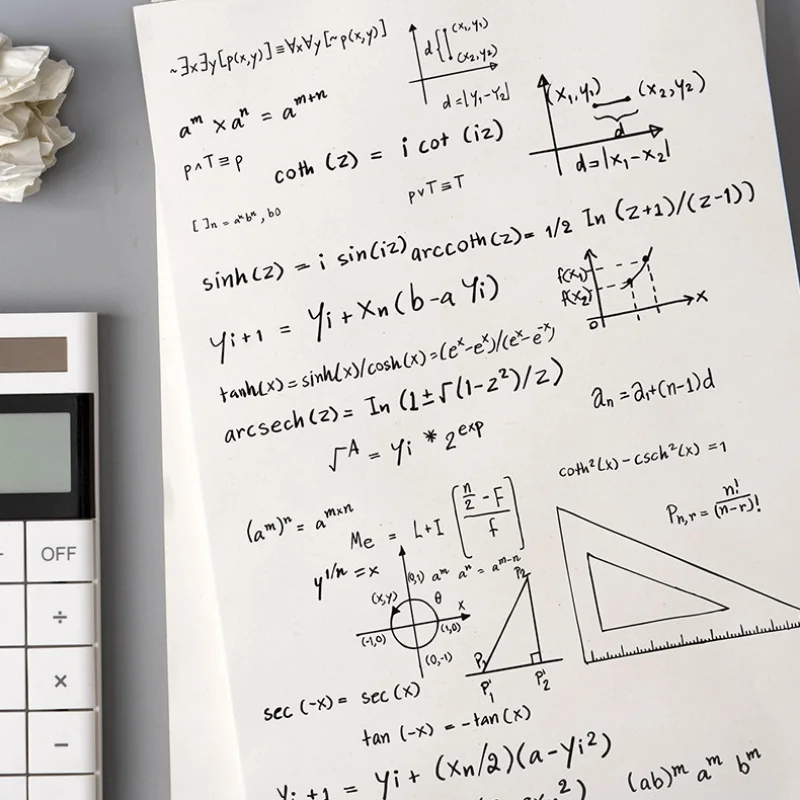 ~∃x∃y[p(x,y)]≡∀x∀y[~p(x,y)]
d
(x₁,y₁)
(x₂,y₂)
d=|y₁-y₂|
aᵐ × aⁿ = aᵐ⁺ⁿ
(x₁,y₁)
(x₂,y₂)
d
d=|x₁-x₂|
p∧T≡p
coth (z) = i cot (iz)
p∨T≡T
[ ]n = aⁿbⁿ, b0
sinh(z) = i sin(iz)
arccoth(z)= 1/2 In (z+1)/(z-1))
yi+1 = yi+xn(b-a yi)
f(x₁)
f(x₂)
0
x
tanh(x)=sinh(x)/cosh(x)=(eˣ-eˣ)/(eˣ-e⁻ˣ)
arcsech(z)= In (1±√(1-z²)/z)
an=a₁+(n-1)d
√A = yi * 2ᵉˣᵖ
coth²(x)-csch²(x) =1
(aᵐ)ⁿ = aᵐˣⁿ
Me = L+I [(n/2 - F)/f]
Pn,r = n!/(n-r)!
y¹/ⁿ =x
(0,1)
aᵐ aⁿ = aᵐ⁻ⁿ
(x,y)
θ
x
(-1,0)
(1,0)
(0,-1)
P₂
P₁
P'₁
P'₂
sec (-x) = sec (x)
tan (-x) = -tan(x)
yi+1 = yi+ (xn/2)(a-yi²)
(ab)ᵐ aᵐ bᵐ
OFF
÷
×
−